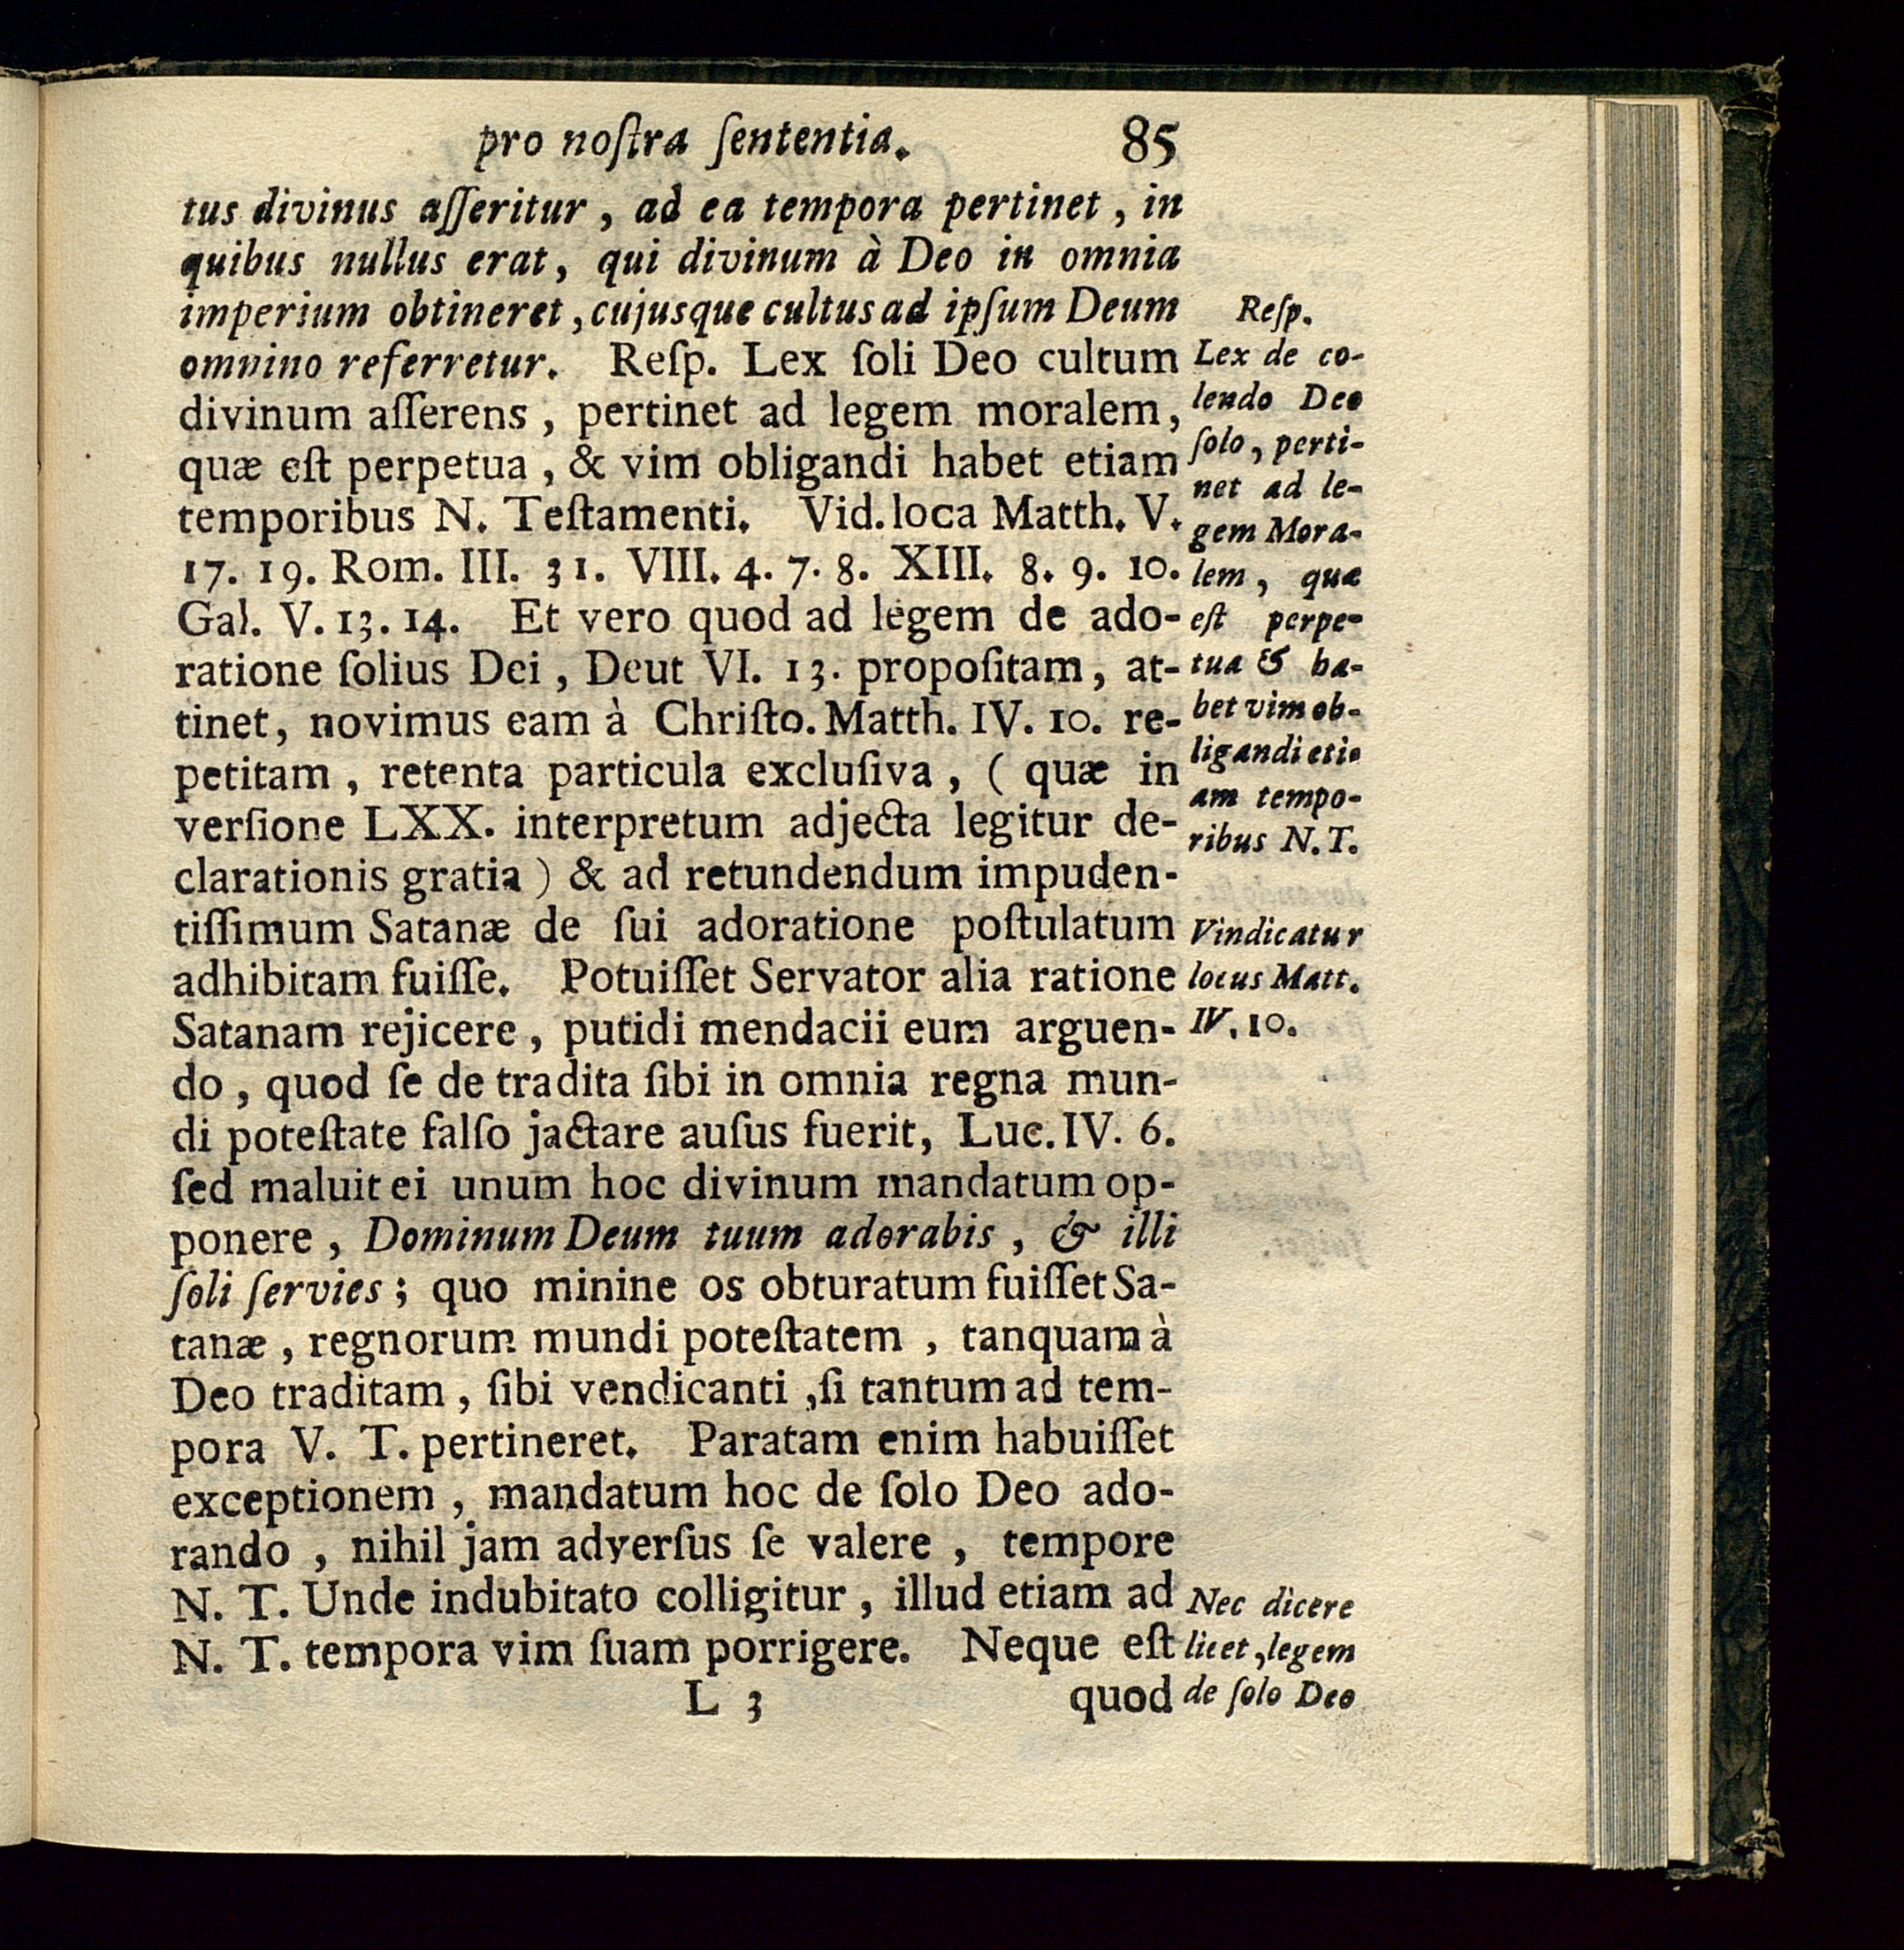 pro noſtra ſententia. 85
tus divinus aſſeritur, ad ea tempora pertinet, in
quibus nullus erat, qui divinum à Deo in omnia
imperium obtineret, cujusque cultus ad ipſum Deum
omnino referretur. Reſp. Lex ſoli Deo cultum
divinum aſſerens, pertinet ad legem moralem,
quæ eſt perpetua, & vim obligandi habet etiam
temporibus N. Teſtamenti. Vid. loca Matth. V.
17. 19. Rom. III. 31. VIII. 4. 7. 8. XIII. 8. 9. 10.
Gal. V. 13. 14. Et vero quod ad legem de ado-
ratione ſolius Dei, Deut VI. 13. propoſitam, at-
tinet, novimus eam à Chriſto. Matth. IV. 10. re-
petitam, retenta particula excluſiva, (quæ in
verſione LXX. interpretum adjecta legitur de-
clarationis gratia) & ad retundendum impuden-
tiſſimum Satanæ de ſui adoratione poſtulatum
adhibitam fuiſſe. Potuiſſet Servator alia ratione
Satanam rejicere, putidi mendacii eum arguen-
do, quod ſe de tradita ſibi in omnia regna mun-
di poteſtate falſo jactare auſus fuerit, Luc. IV. 6.
ſed maluit ei unum hoc divinum mandatum op-
ponere, Dominum Deum tuum adorabis, & illi
ſoli ſervies; quo minine os obturatum fuiſſet Sa-
tanæ, regnorum mundi poteſtatem, tanquam à
Deo traditam, ſibi vendicanti, ſi tantum ad tem-
pora V. T. pertineret. Paratam enim habuiſſet
exceptionem, mandatum hoc de ſolo Deo ado-
rando, nihil jam adverſus ſe valere, tempore
N. T. Unde indubitato colligitur, illud etiam ad
N. T. tempora vim ſuam porrigere. Neque eſt
L 3 quod
Reſp.
Lex de co-
lendo Deo
ſolo, perti-
net ad le-
gem Mora-
lem, quæ
eſt perpe-
tua & ha-
bet vim ob-
ligandi eti-
am tempo-
ribus N. T.
Vindicatur
locus Matt.
IV. 10.
Nec dicere
licet, legem
de ſolo Deo